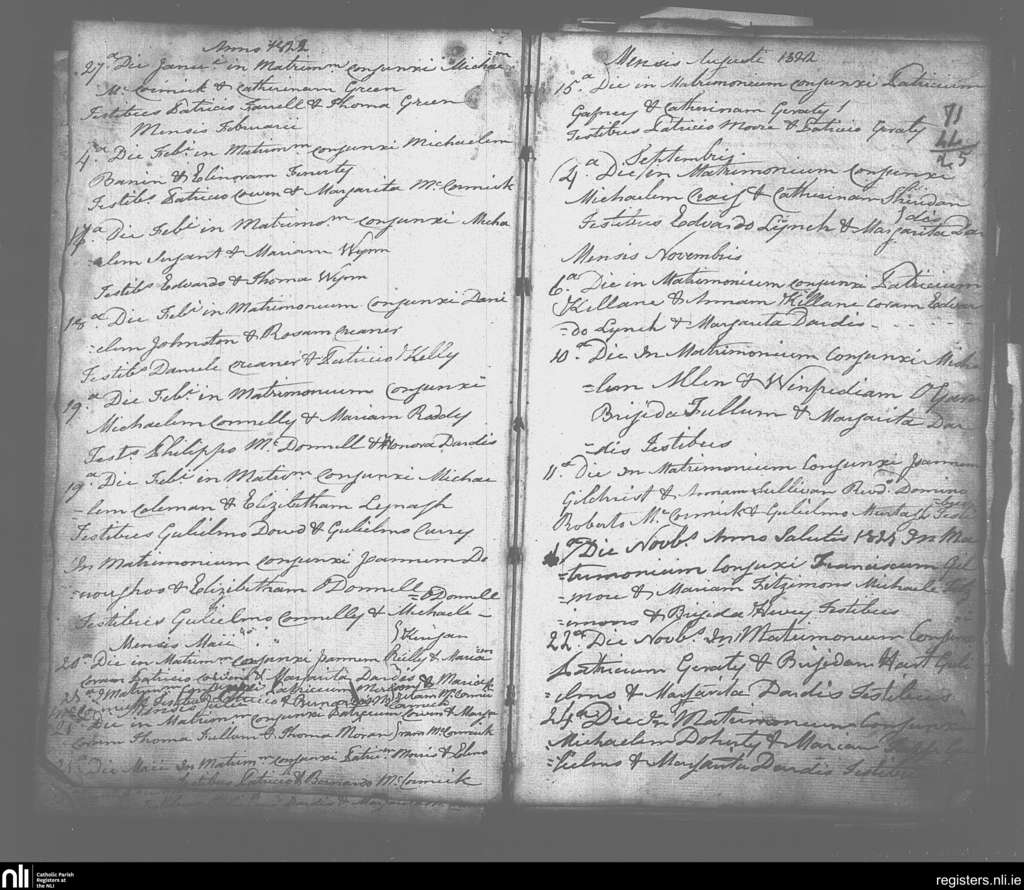 Anno 1822
27.a Die Januii in Matrimm conjunxi Michae=
=m
Mc Cormick & Catherinam Green
Testibus Patricio Farrell & Thoma Green
Mensis Februarii
4.a Die Feb. in Matrimm conjunxi Michaelem
Banin & Elinoram Finerty
Testibs Patricio Cowen & Margarita Mc Cormick
a Die Feb. in Matrimm conjunxi Micha
elem Sergant & Mariam Wynn
Testibs Edvardo & Thoma Wynn
18.a Die Feb. in Matrimonium conjunxi Dani
=elem Johnston & Rosam Creaner
Testibs Daniele Creaner & Patricio Kelly
19.a Die Feb. in Matrimonium conjunxi
Michaelem Connelly & Mariam Reddy
Tests Philippo Mc Donnell & Honora Dardis
19.a Die Feb. in Matrim conjunxi Michae
=lem Coleman & Elizibetham Lynagh
Testibus Gulielmo Dowd & Gulielmo Curry
In Matrimonium conjunxi Joannem Do
=noughos & Elizibetham O Donnell
=O Donnell
Testibus Gulielmo Connelly & Michaele
Kinjan
Mensis Maii
20.a Die in Matrim conjunxi Joannem Reilly & Mariam
Coram Patricio & Margarita Dardis
Matrimm conjunxi Patricium & Mariam
Testibus & Bernardo Mc Cormick
Die in Matrimm conjunxi Patricium Cowen & Marga
Coram Thoma Fullum & Thoma Moran Mc Cormick
Die Maii In Matrimm conjunxi Patrium Morris & Elino
Testibus Patricio & Bernardo Mc Cormick
Dardis & Margarita
Mensis Augusti 1822
15.a Die in Matrimonium conjunxi Patricium
Gafney & Catherinam Geraty
Testibus Patricio Moore & Patricio Geraty
71
44
25
Septembris
4.a Die in Matrimonium conjunxi
Michaelem Craig & Catherinam Sheridan
dis
Testibus Edvardo Lynch & Margarita Dar
Mensis Novembris
6.a Die in Matrimonium conjunxi Patricium
Killane & Annam Killane coram Edvar
=do Lynch & Margarita Dardis
10.a Die In Matrimonium conjunxi Micha
=lem Allen & Winfridiam O'Gara
Brijida Fullum & Margarita Dar
=dis Testibus
11.a Die In Matrimonium Conjunxi Joannem
Gilchrist & Annam Sullivan Revd. Domino
Roberto Mc Cormick & Gulielmo Murtagh Testi
Die Novbs Anno Salutis 1822 In Ma
=trimonium Conjuxi Franciscum Gil
=more & Mariam Fitzimons Michaele Fitz
=imons & Brijida Hevey Testibus
22.a Die Novbs In Matrimonium Conjunxi
Patricium Geraty & Brijidam Hart Guli
=elmo & Margarita Dardis Testibus
24.a Die In Matrimonium Conjunxi
Michaelem Doherty & Mariam Gu
=lielmo & Margarita Dardis Testibus
nli
Catholic Parish
Registers at
the NLI
registers.nli.ie